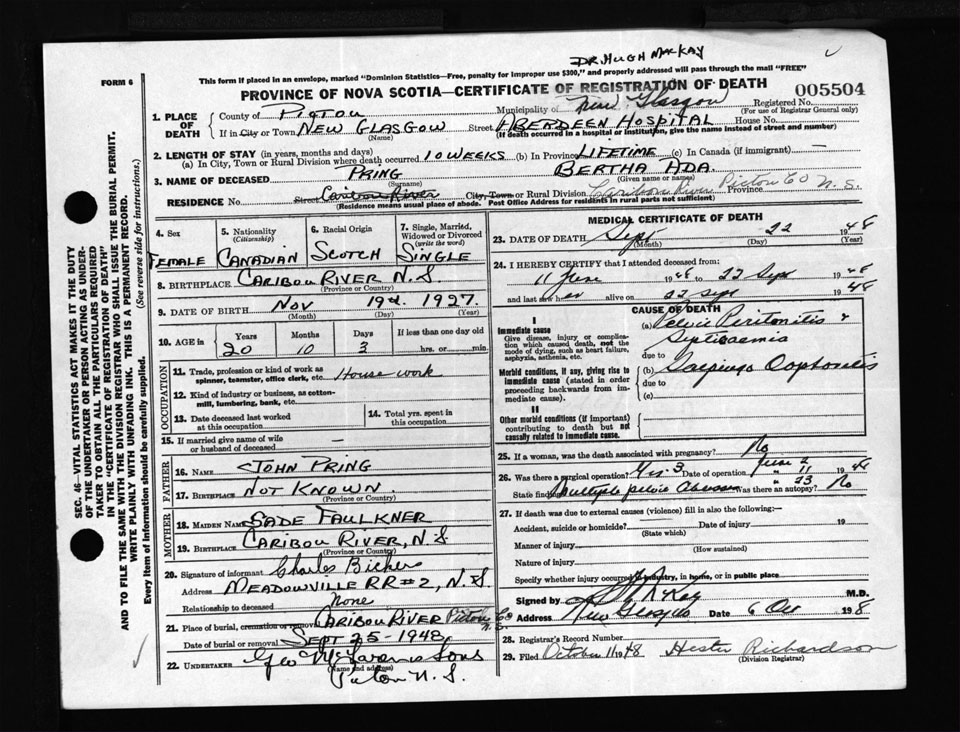 DR. HUGH MACKAY
FORM 6
This form if placed in an envelope, marked "Dominion Statistics—Free, penalty for improper use $300," and properly addressed will pass through the mail "FREE"
PROVINCE OF NOVA SCOTIA—CERTIFICATE OF REGISTRATION OF DEATH
005504
1. PLACE OF DEATH County of PICTOU Municipality of New Glasgow Registered No. (For use of Registrar General only)
If in City or Town NEW GLASGOW (Name) Street ABERDEEN HOSPITAL House No.
(If death occurred in a hospital or institution, give the name instead of street and number)
2. LENGTH OF STAY (in years, months and days)
(a) In City, Town or Rural Division where death occurred 10 WEEKS (b) In Province LIFETIME (c) In Canada (if immigrant) —
3. NAME OF DECEASED PRING (Surname) BERTHA ADA. (Given name or names)
RESIDENCE No. Street Caribou River City, Town or Rural Division Caribou River Pictou Co Province N.S.
(Residence means usual place of abode. Post Office Address for residents in rural parts not sufficient)
4. Sex FEMALE
5. Nationality (Citizenship) CANADIAN
6. Racial Origin SCOTCH
7. Single, Married, Widowed or Divorced (write the word) SINGLE
8. BIRTHPLACE CARIBOU RIVER N.S. (Province or Country)
9. DATE OF BIRTH NOV (Month) 19th. (Day) 1927. (Year)
10. AGE in Years 20 Months 10 Days 3 If less than one day old hrs. or min.
OCCUPATION
11. Trade, profession or kind of work as spinner, teamster, office clerk, etc. House work
12. Kind of industry or business, as cotton-mill, lumbering, bank, etc.
13. Date deceased last worked at this occupation
14. Total yrs. spent in this occupation
15. If married give name of wife or husband of deceased —
FATHER
16. NAME JOHN PRING
17. BIRTHPLACE NOT KNOWN. (Province or Country)
MOTHER
18. MAIDEN NAME SADE FAULKNER
19. BIRTHPLACE CARIBOU RIVER, N.S (Province or Country)
20. Signature of informant Charles
Address MEADOWVILLE RR#2, N.S.
Relationship to deceased None
21. Place of burial, cremation or removal CARIBOU RIVER Pictou Co N.S.
Date of burial or removal SEPT 25-1948
22. UNDERTAKER Geo Sons (Name and address)
Pictou N.S.
MEDICAL CERTIFICATE OF DEATH
23. DATE OF DEATH Sept (Month) 22 (Day) 1948 (Year)
24. I HEREBY CERTIFY that I attended deceased from:
11 June 1948 to 22 Sept 1948
and last saw her alive on 22 Sept 1948
CAUSE OF DEATH
I
Immediate cause
Give disease, injury or complication which caused death, not the mode of dying, such as heart failure, asphyxia, asthenia, etc.
(a) Pelvic Peritonitis &
Septicaemia
due to
Morbid conditions, if any, giving rise to immediate cause (stated in order proceeding backwards from immediate cause).
(b) Salpingo Oophoritis
due to
(c)
II
Other morbid conditions (if important) contributing to death but not causally related to immediate cause.
25. If a woman, was the death associated with pregnancy? No
26. Was there a surgical operation? Yes. 3 Date of operation June 2 " 11 " 23 1948
State findings Multiple pelvic Abscess Was there an autopsy? No
27. If death was due to external causes (violence) fill in also the following:—
Accident, suicide or homicide? (State which) Date of injury 19
Manner of injury (How sustained)
Nature of injury
Specify whether injury occurred in industry, in home, or in public place
Signed by M.D.
Address New Glasgow Date 6 Oct 1948
28. Registrar's Record Number
29. Filed October 11 1948 Hester Richardson (Division Registrar)
SEC. 46—VITAL STATISTICS ACT MAKES IT THE DUTY
OF THE UNDERTAKER OR PERSON ACTING AS UNDER-
TAKER TO OBTAIN ALL THE PARTICULARS REQUIRED
IN THE "CERTIFICATE OF REGISTRATION OF DEATH"
AND TO FILE THE SAME WITH THE DIVISION REGISTRAR WHO SHALL ISSUE THE BURIAL PERMIT.
WRITE PLAINLY WITH UNFADING INK. THIS IS A PERMANENT RECORD.
Every item of Information should be carefully supplied. (See reverse side for instructions.)